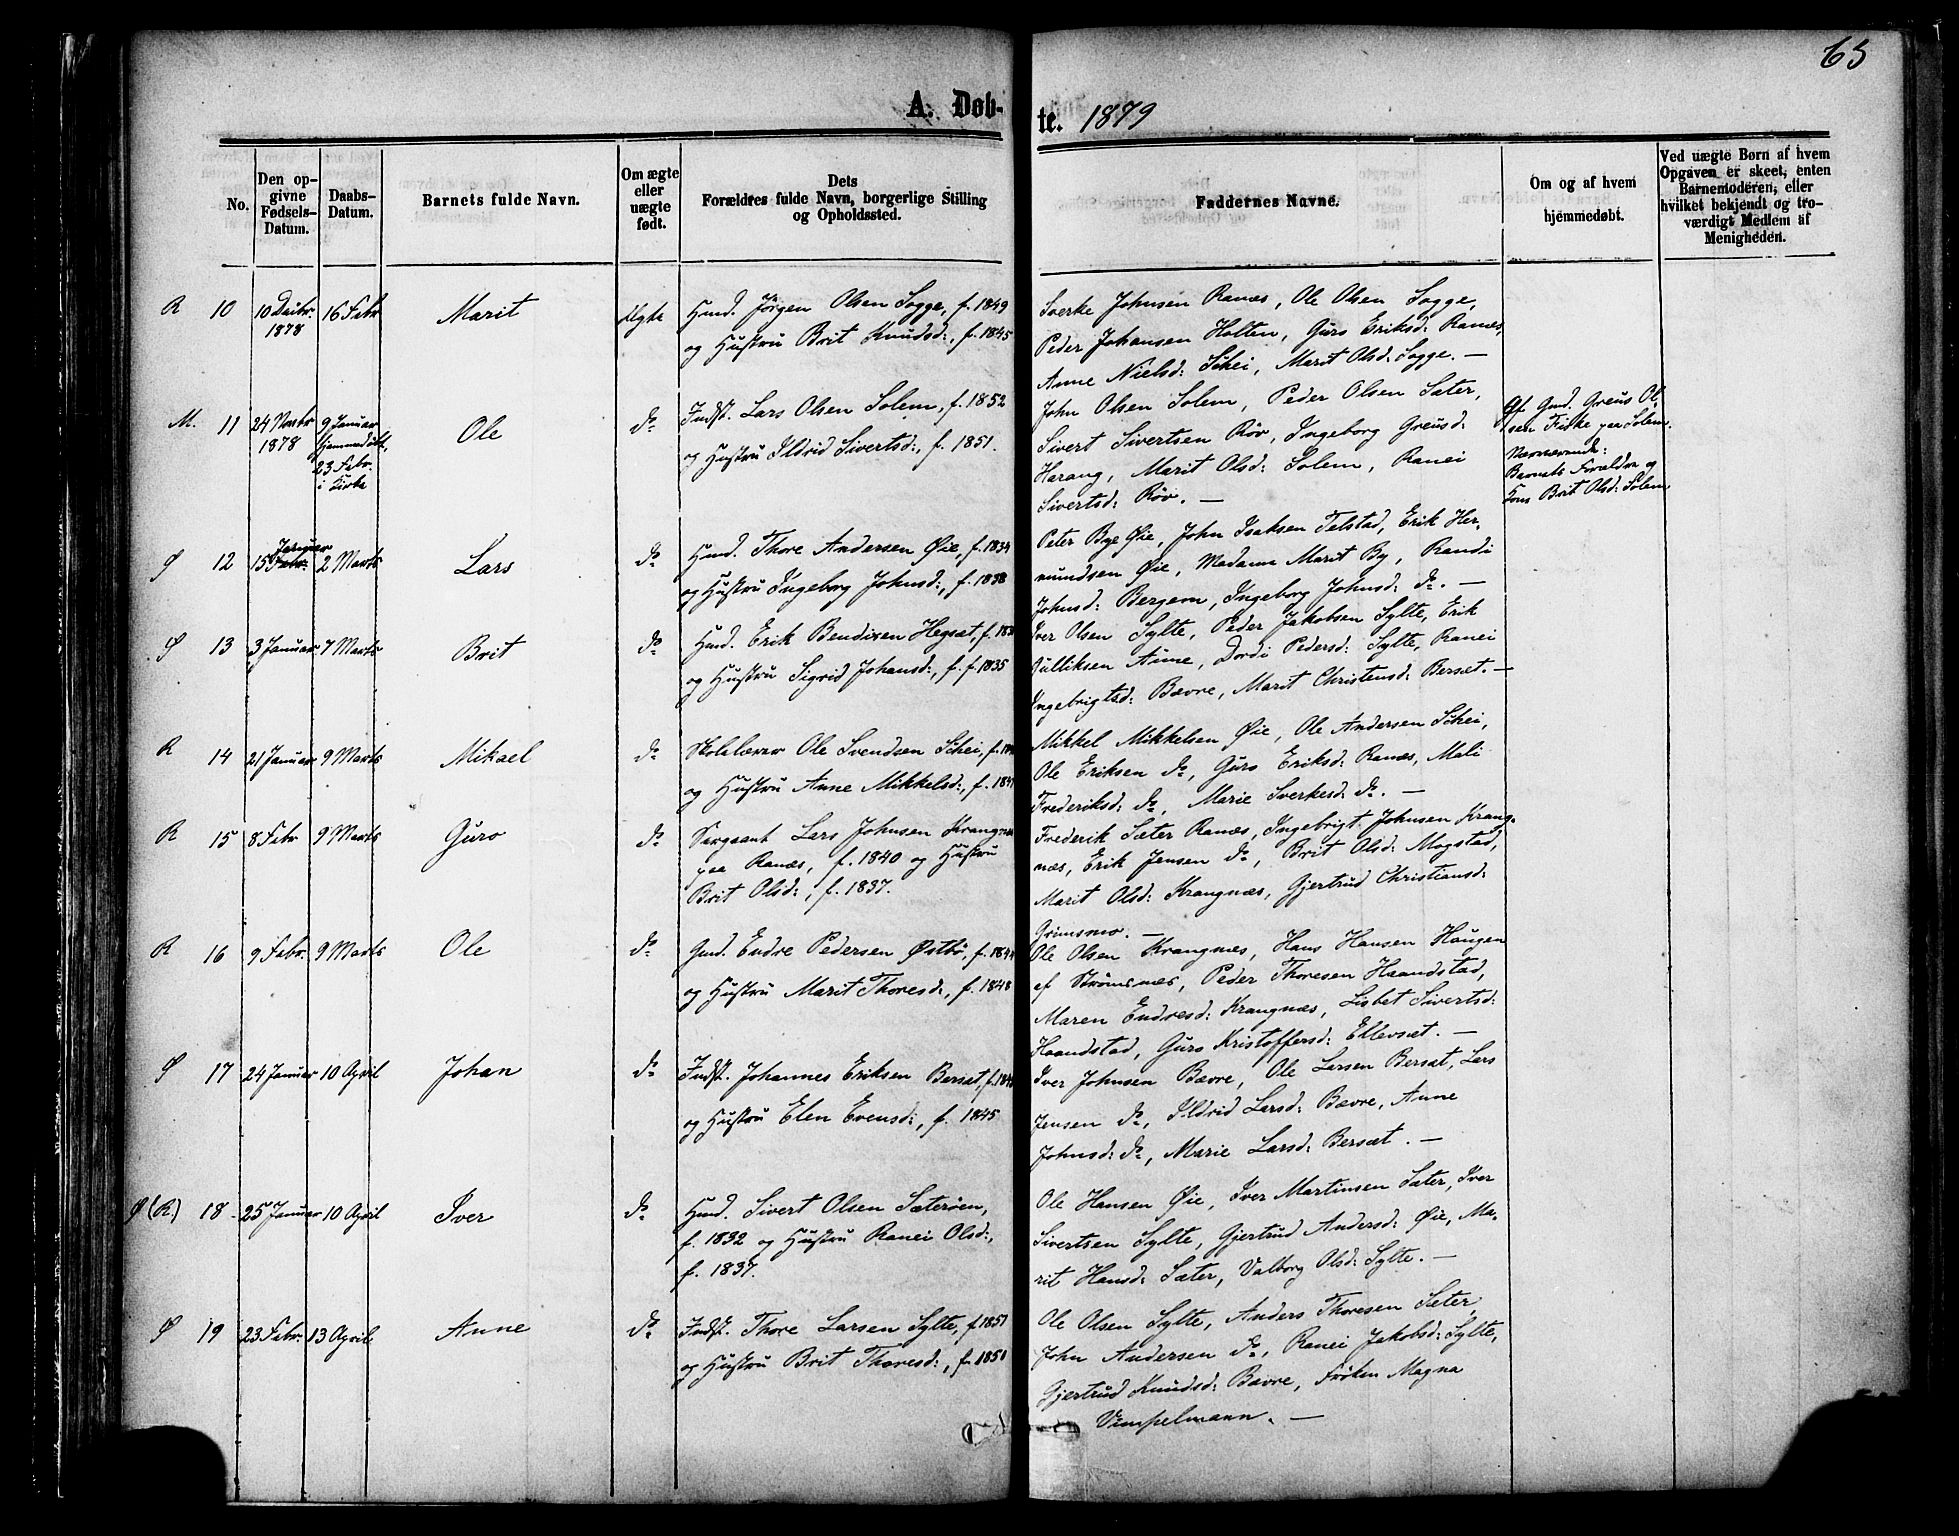 63
A. Døb-
te. 1879
No.
Den op-
givne
Fødsels-
Datum.
Daabs-
Datum.
Barnets fulde Navn.
Om ægte
eller
uægte
født.
Dets
Forældres fulde Navn, borgerlige Stilling
og Opholdssted.
Faddernes Navne.
Om og af hvem
hjemmedøbt.
Ved uægte Børn af hvem
Opgaven er skeet, enten
Barnemoderen, eller
hvilket bekjendt og tro-
værdigt Medlem af
Menigheden.
R 10 10 Decbr. 1878 16 Febr Marit Ægte
Gmd. Jörgen Olsen Sogge, f. 1849
og Hustru Brit Knudsd:, f. 1845
Sverke Johnsen Ranæs, Ole Olsen Sogge,
Peder Johansen Holten, Guro Eriksd: Ranæs,
Anne Nielsd: Schei, Marit Olsd: Sogge. —
M. 11 24 Novbr 1878
9 Januar
hjemmedöbt,
23 Febr.
i Kirke
Ole do
Indst. Lars Olsen Solem, f. 1852
og Hustru Ildrid Sivertsd:, f. 1851.
John Olsen Solem, Peder Olsen Sæter,
Sivert Sivertsen Röv, Ingeborg Greusd:
Harang, Marit Olsd: Solem, Ranei
Sivertsd: Röv. —
Af Gmd. Greus Ol-
sen Fiske paa Solem.
Nærværende:
Barnets Forældre og
Kone Brit Olsd: Solem
Ø 12 15 Januar 2 Marts Lars do
Gmd. Thore Andersen Øie, f. 1834
og Hustru Ingeborg Johnsd:, f. 1838
Peter Bye Øie, John Isaksen Telstad, Erik Her-
mundsen Øie, Madam Marit By, Randi
Johnsd: Bergem, Ingeborg Johnsd: do. —
Ø 13 3 Januar 7 Marts Brit do
Gmd. Erik Bendixen Hegsæt, f.
og Hustru Sigrid Johansd:, f. f 1835
Iver Olsen Sylte, Peder Jakobsen Sylte, Erik
Gulliksen Aune, Dordi Pedersd: Sylte, Ranei
Ingebrigtsd: Bævre, Marit Christensd: Bersæt. —
R 14 21 Januar 9 Marts Mikael do
Skolelærer Ole Svendsen Schei, f.
og Hustru Anne Mikkelsd:, f.
Mikkel Mikkelsen Øie, Ole Andersen Schei,
Ole Eriksen do, Guro Eriksd: Ranæs, Mali
Frederiksd: do, Marie Sverkesd: do. —
R 15 8 Febr 9 Marts Guro do
Sergeant Lars Johnsen Krangnæs
paa Ranæs, f. 1840 og Hustru
Brit Olsd:, f. 1837.
Frederik Sæter Ranæs, Ingebrigt Johnsen Krang-
næs, Erik Jensen do, Brit Olsd: Mogstad,
Marit Olsd: Krangnæs, Gjertrud Christiansd:
Grimsmo. —
R 16 9 Febr. 9 Marts Ole do
Gmd. Endre Pedersen Østbö, f.
og Hustru Marit Thoresd:, f. 1848
Ole Olsen Krangnæs, Hans Hansen Haugen
af Strömsnæs, Peder Thoresen Haandstad,
Maren Endresd: Krangnæs, Lisbet Sivertsd:
Haandstad, Guro Kristoffersd: Ellevsæt. —
Ø 17 24 Januar 10 April Johan do
Indst. Johannes Eriksen Bersæt, f.
og Hustru Elen Evensd:, f. 1845
Iver Johnsen Bævre, Ole Larsen Bersæt, Lars
Jensen do, Ildrid Larsd: Bævre, Anne
Johnsd: do, Marie Larsd: Bersæt. —
Ø (R.) 18 25 Januar 10 April Iver do
Gmd. Sivert Olsen Sæteröen,
f. 1832 og Hustru Ranei Olsd:,
f. 1837.
Ole Hansen Øie, Iver Martinsen Sæter, Iver
Sivertsen Sylte, Gjertrud Andersd: Øie, Ma-
rit Hansd: Sæter, Valborg Olsd: Sylte. —
Ø 19 23 Febr. 13 April Anne do
Indst. Thore Larsen Sylte, f. 1851
og Hustru Brit Thoresd:, f. 1851
Ole Olsen Sylte, Anders Thoresen Sæter,
John Andersen do, Ranei Jakobsd: Sylte,
Gjertrud Knudsd: Bævre, Fröken Magna
Vimpelmann. —